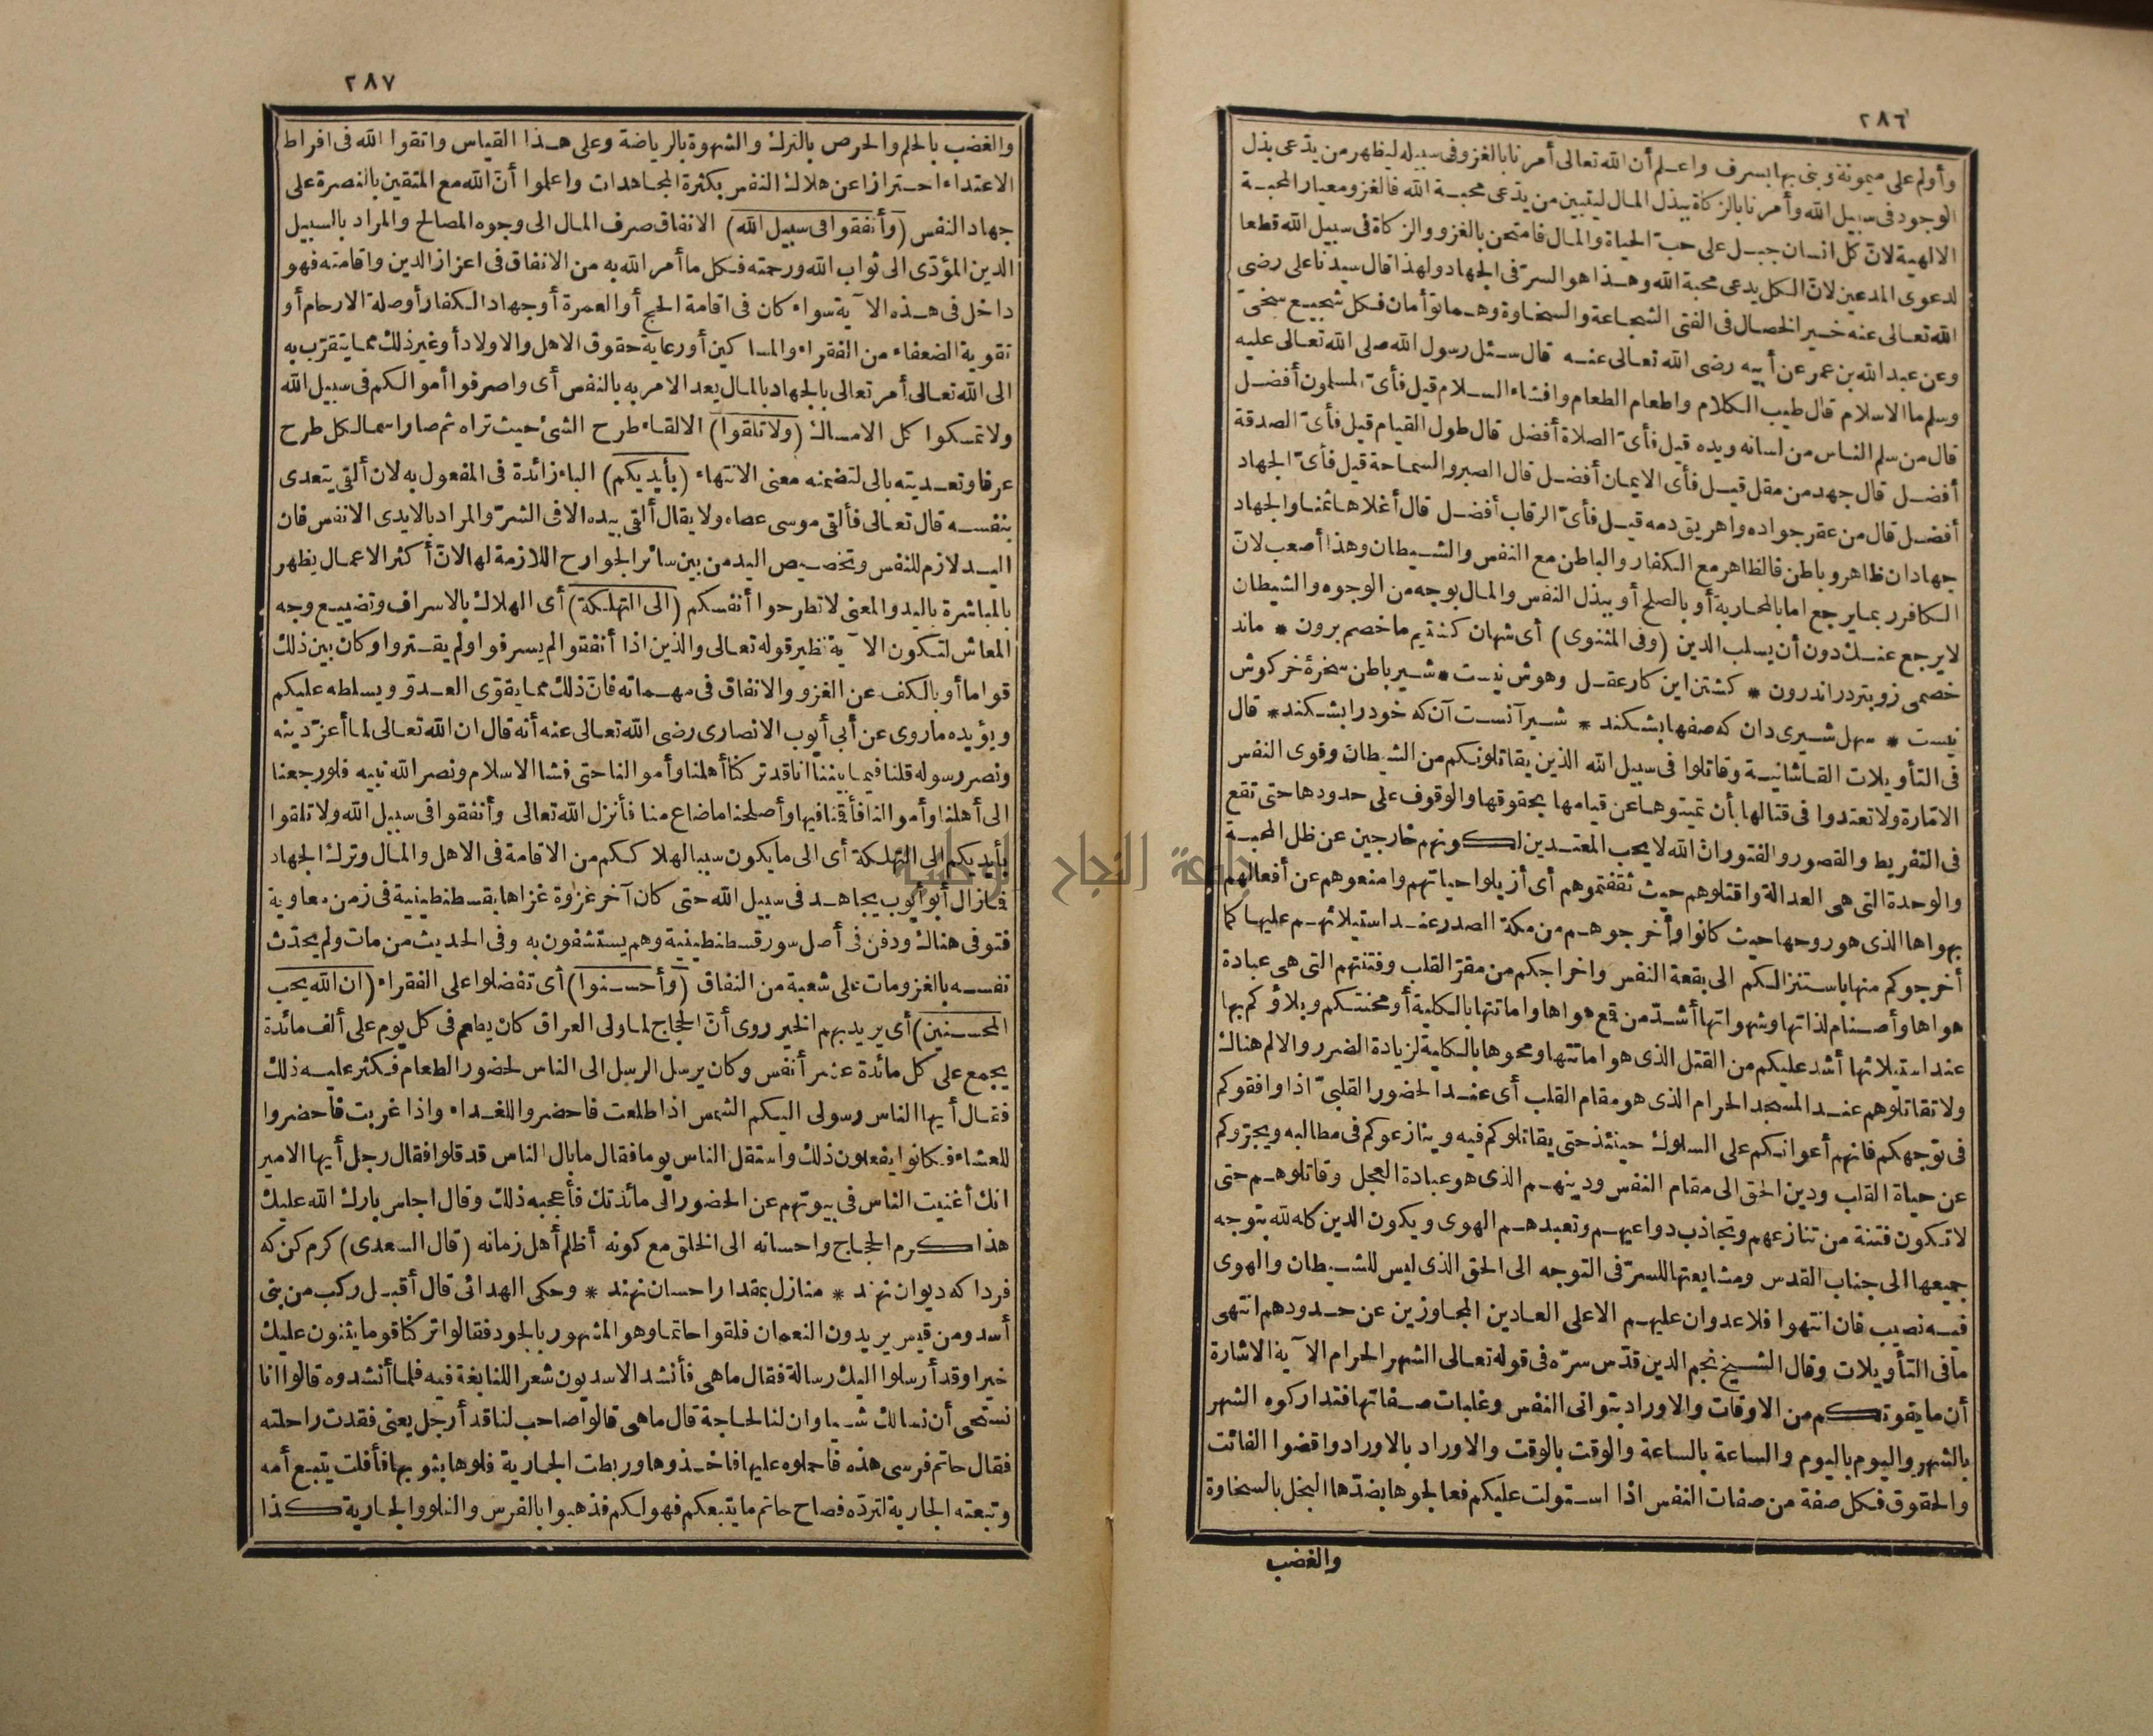 ٢٨٦
وأولم على ميمونة وبنى بها بسرف واعلم أن الله تعالى أمرنا بالغزو فى سبيله ليظهر من يدّعى بذل
الوجود فى سبيل الله وأمرنا بالزكاة ببذل المال ليتبين من يدّعى محبة الله فالغزو معيار المحبة
الالهية لانّ كل انسان جبل على حبّ الحياة والمال فامتحن بالغزو والزكاة فى سبيل الله قطعا
لدعوى المدعين لانّ الكل يدعى محبة الله وهذا هو السرّ فى الجهاد ولهذا قال سيدنا على رضى
الله تعالى عنه خير الخصال فى الفتى الشجاعة والسخاوة وهما توأمان فكل شجيع سخىّ
وعن عبد الله بن عمر عن أبيه رضى الله تعالى عنه قال سئل رسول الله صلى الله تعالى عليه
وسلم ما الاسلام قال طيب الكلام واطعام الطعام وافشاء السلام قيل فأىّ المسلمون أفضل
قال من سلم الناس من لسانه ويده قيل فأىّ الصلاة أفضل قال طول القيام قيل فأىّ الصدقة
أفضل قال جهد من مقل قيل فأى الايمان أفضل قال الصبر والسماحة قيل فأىّ الجهاد
أفضل قال من عقر جواده واهريق دمه قيل فأىّ الرقاب أفضل قال أغلاها ثمنا والجهاد
جهادان ظاهر وباطن فالظاهر مع الكفار والباطن مع النفس والشيطان وهذا أصعب لانّ
الكافر ربما يرجع اما بالمحاربة أو بالصلح أو ببذل النفس والمال بوجه من الوجوه والشيطان
لا يرجع عنك دون أن يسلب الدين (وفى المثنوى) أى شهان كشتيم ما خصم برون * ماند
خصمى زوبتر در اندرون * كشتن اين كار عقل وهوش نيست * شير باطن سخرۀ خركوش
نيست * سهل شيرى دان كه صفها بشكند * شير آنست آن كه خود را بشكند * قال
فى التأويلات القاشانية وقاتلوا فى سبيل الله الذين يقاتلونكم من الشيطان وقوى النفس
الامّارة ولا تعتدوا فى قتالها بأن تميتوها عن قيامها بحقوقها والوقوف على حدودها حتى تقع
فى التفريط والقصور والفتور انّ الله لا يحب المعتدين لكونهم خارجين عن ظل المحبة
والوحدة التى هى العدالة واقتلوهم حيث ثقفتموهم أى أزيلوا حياتهم وامنعوهم عن أفعالهم
بهواها الذى هو روحها حيث كانوا وأخرجوهم من مكة الصدر عند استيلائهم عليها كما
أخرجوكم منها باستنزالكم الى بقعة النفس واخراجكم من مقرّ القلب وفتنتهم التى هى عبادة
هواها وأصنام لذاتها وشهواتها أشدّ من قمع هواها واماتتها بالكلية أو محنتكم وبلاؤكم بها
عند استيلائها أشد عليكم من القتل الذى هو اماتتها ومحوها بالكلية لزيادة الضرر والالم هناك
ولا تقاتلوهم عند المسجد الحرام الذى هو مقام القلب أى عند الحضور القلبىّ اذا وافقوكم
فى توجهكم فانهم أعوانكم على السلوك حينئذ حتى يقاتلوكم فيه وينازعوكم فى مطالبه ويجرّوكم
عن حياة القلب ودين الحق الى مقام النفس ودينهم الذى هو عبادة العجل وقاتلوهم حتى
لا تكون فتنة من تنازعهم وتجاذب دواعيهم وتعبدهم الهوى ويكون الدين كله لله بتوجه
جميعها الى جناب القدس ومشايعتها للسرّ فى التوجه الى الحق الذى ليس للشيطان والهوى
فيه نصيب فان انتهوا فلا عدوان عليهم الا على العادين المجاوزين عن حدودهم انتهى
ما فى التأويلات وقال الشيخ نجم الدين قدّس سرّه فى قوله تعالى الشهر الحرام الآية الاشارة
أن ما يفوتكم من الاوقات والاوراد بتوانى النفس وغلبات صفاتها فتداركوه الشهر
بالشهر واليوم باليوم والساعة بالساعة والوقت بالوقت والاوراد بالاوراد واقضوا الفائت
والحقوق فكل صفة من صفات النفس اذا استولت عليكم فعالجوها بضدّها البخل بالسخاوة
والغضب
٢٨٧
والغضب بالحلم والحرص بالترك والشهوة بالرياضة وعلى هذا القياس واتقوا الله فى افراط
الاعتداء احترازا عن هلاك النفس بكثرة المجاهدات واعلموا أنّ الله مع المتقين بالنصرة على
جهاد النفس (وأنفقوا فى سبيل الله) الانفاق صرف المال الى وجوه المصالح والمراد بالسبيل
الدين المؤدّى الى ثواب الله ورحمته فكل ما أمر الله به من الانفاق فى اعزاز الدين واقامته فهو
داخل فى هذه الآية سواء كان فى اقامة الحج أو العمرة أو جهاد الكفار أو صلة الارحام أو
تقوية الضعفاء من الفقراء والمساكين أو رعاية حقوق الاهل والاولاد أو غير ذلك مما يتقرّب به
الى الله تعالى أمر تعالى بالجهاد بالمال بعد الامر به بالنفس أى واصرفوا أموالكم فى سبيل الله
ولا تمسكوا كل الامساك (ولا تلقوا) الالقاء طرح الشىٔ حيث تراه ثم صار اسما لكل طرح
عرفا وتعديته بالى لتضمنه معنى الانتهاء (بأيديكم) الباء زائدة فى المفعول به لان ألقى يتعدى
بنفسه قال تعالى فألقى موسى عصاه ولا يقال ألقى بيده الا فى الشرّ والمراد بالايدى الانفس فان
اليد لازم للنفس وتخصيص اليد من بين سائر الجوارح اللازمة لها لانّ أكثر الاعمال يظهر
بالمباشرة باليد والمعنى لا تطرحوا أنفسكم (الى التهلكة) أى الهلاك بالاسراف وتضييع وجه
المعاش لتكون الآية نظير قوله تعالى والذين اذا أنفقوا لم يسرفوا ولم يقتروا وكان بين ذلك
قواما أو بالكف عن الغزو والانفاق فى مهماته فانّ ذلك مما يقوّى العدوّ ويسلطه عليكم
ويؤيده ما روى عن أبى أيوب الانصارى رضى الله تعالى عنه أنه قال ان الله تعالى لما أعزّ دينه
ونصر رسوله قلنا فيما بيننا انا قد تركنا أهلنا وأموالنا حتى فشا الاسلام ونصر الله نبيه فلو رجعنا
الى أهلنا وأموالنا فأقمنا فيها وأصلحنا ما ضاع منا فأنزل الله تعالى وأنفقوا فى سبيل الله ولا تلقوا
بأيديكم الى التهلكة أى الى ما يكون سببا لهلاككم من الاقامة فى الاهل والمال وترك الجهاد
فما زال أبو أيوب يجاهد فى سبيل الله حتى كان آخر غزوة غزاها بقسطنطينية فى زمن معاوية
فتوفى هناك ودفن فى أصل سور قسطنطينية وهم يستشفون به وفى الحديث من مات ولم يحدّث
نفسه بالغزو مات على شعبة من النفاق (وأحسنوا) أى تفضلوا على الفقراء (ان الله يحب
المحسنين) أى يريد بهم الخير روى أنّ الحجاج لما ولى العراق كان يطعم فى كل يوم على ألف مائدة
يجمع على كل مائدة عشر أنفس وكان يرسل الرسل الى الناس لحضور الطعام فكثر عليه ذلك
فقال أيها الناس رسولى اليكم الشمس اذا طلعت فاحضروا للغداء واذا غربت فاحضروا
للعشاء فكانوا يفعلون ذلك واستقل الناس يوما فقال ما بال الناس قد قلوا فقال رجل أيها الامير
انك أغنيت الناس فى بيوتهم عن الحضور الى مائدتك فأعجبه ذلك وقال اجلس بارك الله عليك
هذا كرم الحجاج واحسانه الى الخلق مع كونه أظلم أهل زمانه (قال السعدى) كرم كن كه
فردا كه ديوان نهند * منازل بمقدار احسان نهند * وحكى الهدائى قال أقبل ركب من بنى
أسد ومن قيس يريدون النعمان فلقوا حاتما وهو المشهور بالجود فقالوا تركنا قوما يثنون عليك
خيرا وقد أرسلوا اليك رسالة فقال ما هى فأنشد الاسديون شعرا للنابغة فيه فلما أنشدوه قالوا انا
نستحى أن نسالك شيا وان لنا لحاجة قال ما هى قالوا صاحب لنا قد أرجل يعنى فقدت راحلته
فقال حاتم فرسى هذه فاحملوه عليها فاخذوها وربطت الجارية فلوها بثوبها فأفلت يتبع أمه
وتبعته الجارية لتردّه فصاح حاتم ما يتبعكم فهو لكم فذهبوا بالفرس والفلو والجارية كذا
جامعة النجاح الوطنية